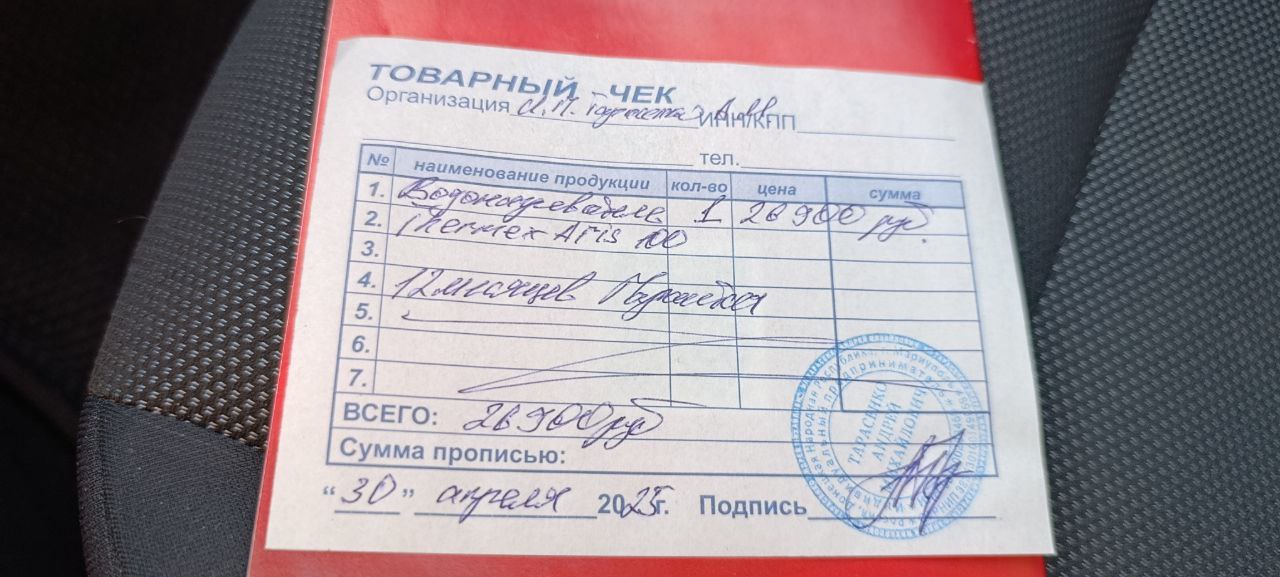 ТОВАРНЫЙ ЧЕК
Организация И.П. Тарасенко А.М. ИНН/КПП
тел.
№ наименование продукции кол-во цена сумма
1. Водонагреватель 1 26 900 руб.
2. Thermex Aris 100
3.
4. 12 месяцев Гарантия
5.
6.
7.
ВСЕГО: 26 900 руб
Сумма прописью:
"30" апреля 2025г. Подпись
ТАРАСЕНКО
АНДРЕЙ
МИХАЙЛОВИЧ